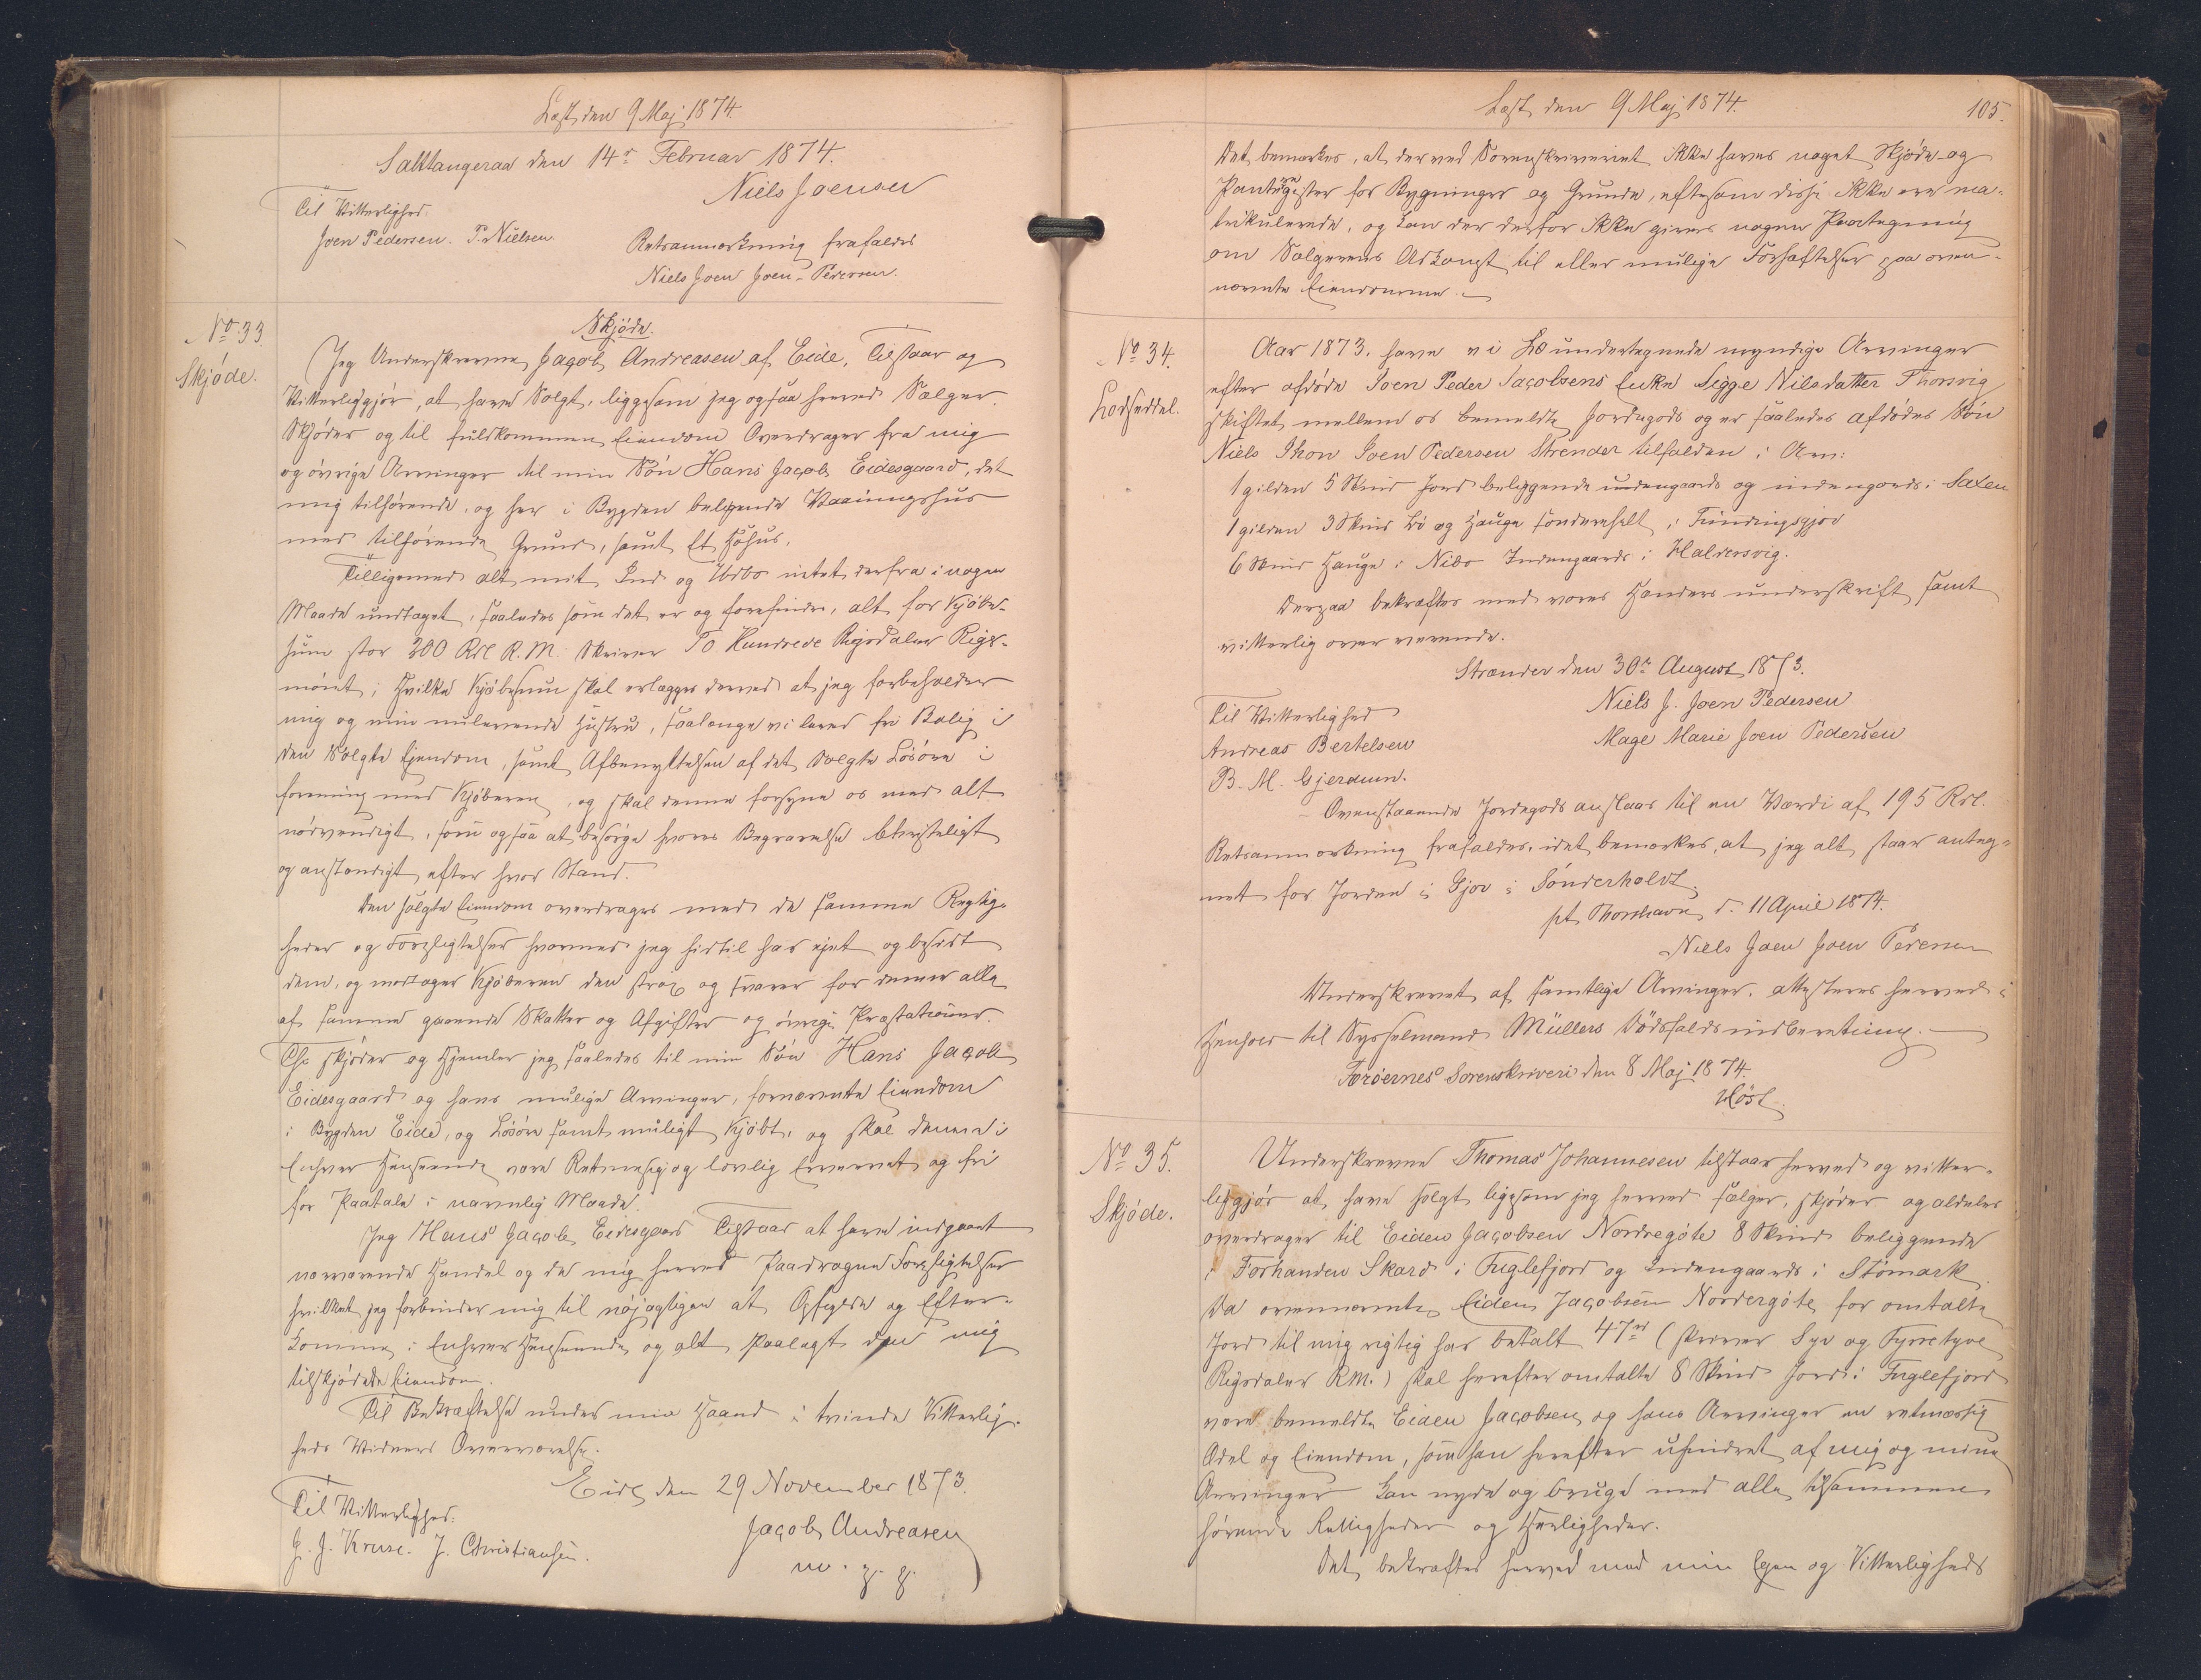 Læst den 9 Maj 1874.
Saltangeraa den 14de Februar 1874.
Niels Joensen
Til Vitterlighed:
Joen Pedersen. P. Nielsen.
Retsanmærkning frafaldes
Niels Joen Joen-Pedersen.
No 33.
Skjøde.
Skjøde.
Jeg Underskrevne Jacob Andreasen af Eide, Tilstaar og
Vitterliggjør, at have Solgt, liggesom jeg ogsaa herved Sælger,
Skjøder og til fuldkommen Eiendom Overdrager fra mig
og øvrige Arvinger til min Søn Hans Jacob Eidesgaard, det
mig tilhørende, og her i Bygden beliggende Vaaningshus
med tilhørende Grund, samt Et Høhus,
Tilligemed alt mit Ind og Udbo intet derfra i nogen
Maade undtaget, saaledes som det er og forefindes, alt for Kjøbe-
sum stor 200 Rdl R.M. Skriver To Hundrede Rigsdaler Rigs-
mønt; Hvilken Kjøbesum skal erlægges derved at jeg forbeholder
mig og min nulevende Hustru, saalænge vi lever fri Bolig i
den Solgte Ejendom, samt Afbenyttelsen af det Solgte Løsøre i
forening med Kjøberen, og skal denne forsyne os med alt
nødvendigt, som ogsaa at besørge hvores Begravelse Christeligt
og anstændigt efter hvor Stand.
Den solgte Eiendom overdrages med de samme Rettig-
heder og Forpligtelser hvormed jeg hidtil har ejet og besidt
dem, og modtager Kjøberen den strax og svarer for denne alle
af samme gaaende Skatter og Afgifter og øvrige Præstationer.
Thi skjøder og Hjemler jeg saaledes til min Søn Hans Jacob
Eidesgaard og hans mulige Arvinger, fornævnte Eiendom
i Bygden Eide, og Løsøre samt muligt Kjøbt, og skal denne i
Enhver Henseende være Retmæsig og lovlig Erhvervet og fri
for Paatale i navnlig Maade.
Jeg Hans Jacob Eidesgaard Tilstaar at have indgaaet
nærværende Handel og de mig herved Paadragne Forpligtelser
hvilket jeg forbinder mig til nøjagtigen at Opfylde og Efter-
komme i Enhver Henseende, og alt Paalagt den mig
tilskjødede Eiendom.
Til Bekræftelse under min Haand i tvinde Vitterlig-
heds Vidners Overværelse.
Eide den 29 November 1873.
Til Vitterlighed:
J. J. Kruse. J. Christiansen.
Jacob Andreasen
m. f. P.
Læst den 9 Maj 1874.
105.
Det bemærkes, at der ved Sorenskriveriet ikke haves noget Skjøde- og
Panteregister for Bygninger og Grunde, eftersom disse ikke ere ma-
trikulerede, og kan der derfor ikke gives nogen Paategning
om Sælgerens Adkomst til eller mulige Forhæftelser paa oven-
nævnte Eiendomme.
No 34.
Lodseddel.
Aar 1873. have vi To undertegnede myndige Arvinger
efter afdøde Joen Peder Jacobsens Enke Sigge Nilsdatter Thorsvig
skiftet mellem os bemeldte Jordegods og er saaledes afdødes Søn
Niels Jhon Joen Pedersen Strender tilfalden i Arv:
1 gilden 5 Skind Jord beliggende undengaards og indengaards i Saxen
1 gilden 3 Skind Bø og Hauge sønderholt i Fundingsgjov
6 Skind Hauge i Nibo Indengaards i Haldersvig.
Derpaa bekræftes med vores Hænders underskrift samt
vitterlig overværende.
Strander den 30te August 1873.
Til Vitterlighed
Andreas Bertelsen
B. M. Gjerdum.
Niels J. Joen Pedersen
Mage Marie Joen Pedersen
Ovenstaaende Jordegods anslaas til en Værdi af 195 Rdl.
Retsanmærkning frafaldes, idet bemærkes, at jeg alt staar anteg-
net for Jorden i Gjov i Sønderholdt.
pt Thorshavn, d. 11 April 1874.
Niels Joen Joen Pedersen
Underskrevet af samtlige Arvinger, attesteres herved i
Henhold til Sysselmand Müllers Dødsfaldsindberetning.
Færøernes Sorenskriveri den 8 Maj 1874.
Høst.
No 35.
Skjøde.
Underskrevne Thomas Johannesen tilstaar herved og vitter-
liggjør at have solgt ligesom jeg herved sælger, skjøder og aldeles
overdrager til Eiden Jacobsen Nordregøte 8 Skind beliggende
i Forhanden Skard i Fuglefjord og Indengaards i Stømark.
Da ovennævnte Eiden Jacobsen Nordergøte for omtalte
Jord til mig rigtig har betalt 47rd (skriver Syv og Fyrretyve
Rigsdaler RM.) skal herefter omtalte 8 Skind Jord i Fuglefjord
være bemeldte Eiden Jacobsen og hans Arvinger en retmæssig
Odel og Eiendom, som han herefter uhindret af mig og mine
Arvinger kan nyde og bruge med alle tilsammen
hørende Rettigheder og Herligheder.
Det bekræftes herved med min Egen og Vitterligheds